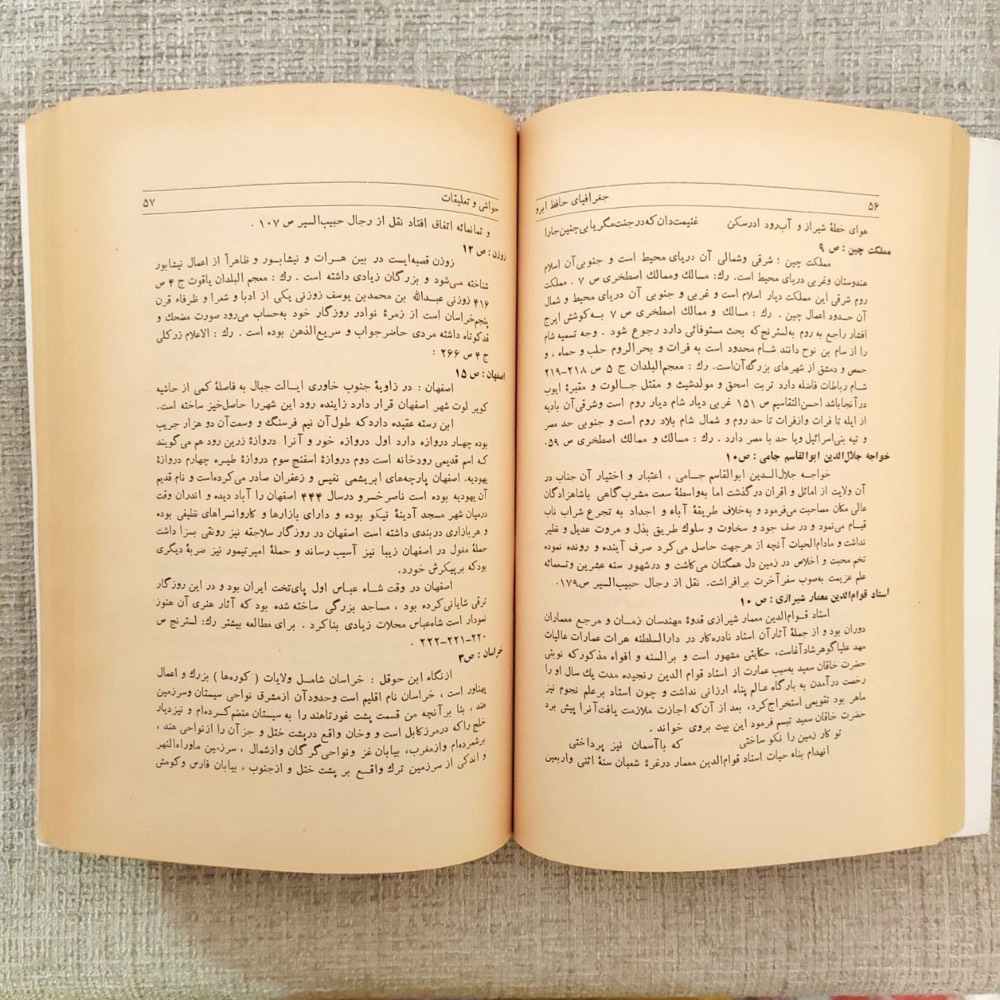 ۵۶
جغرافیای حافظ ابرو
هوای خطهٔ شیراز و آب‌رود ادرسکن غنیمت‌دان که در جنت مگر یابی چنین جارا
مملکت چین : ص ۹
مملکت چین ؛ شرقی وشمالی آن دریای محیط است و جنوبی‌آن اسلام
هندوستان وغربی دریای محیط است . رك : مسالك‌وممالك اصطخری ص ۷ . مملکت
روم شرقی این مملکت دیار اسلام است و غربی و جنوبی آن دریای محیط است و شمال
آن حدود اعمال چین . رك : مسالك و ممالك اصطخری ص ۷ به‌کوشش ایرج
افشار راجع به روم به‌لسترنج‌که بحث مستوفائی دارد رجوع شود . وجه تسمیه شام
را از سام بن نوح دانند شام محدود است به فرات و بحرالروم حلب و حماه ، و
حمص و دمشق از شهرهای بزرگ‌آن‌است. رك : معجم‌البلدان ج ۵ ص ۲۱۸-۲۱۹
شام رباطات فاضله دارد تربت اسحق و مولدشیث و مقتل جالوت و مقبرهٔ ایوب
در‌آنجاباشد احسن‌التقاسیم ص ۱۵۱ غربی دیار شام دیار روم است وشرقی‌آن بادیه
از ایله تا فرات وازفرات تا حد روم و شمال شام بلاد روم است و جنوبی حد مصر
و تیه بنی‌اسرائیل وبا حد با مصر دارد . رك : مسالك و ممالك اصطخری ص ۵۹.
خواجه جلال‌الدین ابوالقاسم جامی : ص۱۰
خواجه جلال‌الدین ابوالقاسم جامی ، اعتبار و اختیار آن جناب در
آن ولایت از اماثل و اقران درگذشت اما به‌واسطهٔ سعت مشرب‌گاهی باشاهزادگان
عالی مکان مصاحبت می‌فرمود و به‌خلاف طریقهٔ آباء و اجداد به تجرع شراب ناب
قیام می‌نمود و در صف جود و سخاوت و سلوك طریق بذل و مروت عدیل و نظیر
نداشت و مادام‌الحیات آنچه از هرجهت حاصل می‌کرد صرف آینده و رونده نموده
تخم محبت و اخلاص در زمین دل همگنان می‌کاشت و درشهور سنه عشرین وتسمائه
علم عزیمت به‌صوب سفر‌آخرت برافراشت. نقل از رجال حبیب‌السیر ص۱۷۹.
استاد قوام‌الدین معمار شیرازی : ص ۱۰
استاد قوام‌الدین معمار شیرازی قدوهٔ مهندسان زمان و مرجع معماران
دوران بود و از جملهٔ آثارآن استاد نادره‌کار در دارالسلطنه هرات عمارات عالیات
مهد علیاگوهرشادآغاست، حکایتی مشهور است و برالسنه و افواه مذکورکه نوبتی
حضرت خاقان سعید به‌سبب عمارت از استاد قوام الدین رنجیده مدت یك سال او را
رخصت درآمدن به بارگاه عالم پناه ارزانی نداشت و چون استاد برعلم نجوم نیز
ماهر بود تقویمی استخراج‌کرد، بعد از آن‌که اجازت ملازمت یافت‌آنرا پیش برد
حضرت خاقان سعید تبسم فرمود این بیت بروی خواند .
تو کار زمین را نکو ساختی که باآسمان نیز پرداختی
انهدام بناه حیات استاد قوام‌الدین معمار درغرهٔ شعبان سنهٔ اثنی واربعین
حواشی و تعلیقات
۵۷
و ثمانمائه اتفاق افتاد نقل از رجال حبیب‌السیر ص ۱۰۷ .
زوزن : ص ۱۲
زوزن قصبه‌ایست در بین هرات و نیشابور و ظاهراً از اعمال نیشابور
شناخته می‌شود و بزرگان زیادی داشته است . رك : معجم البلدان یاقوت ج ۴ ص
۴۱۶ زوزنی عبدالله بن محمدبن یوسف زوزنی یکی از ادبا و شعرا و ظرفاه قرن
پنجم‌خراسان است از زمرهٔ نوادر روزگار خود به‌حساب می‌رود صورت مضحك و
قدکوتاه داشته مردی حاضرجواب و سریع‌الذهن بوده است . رك : الاعلام زرکلی
ج ۴ ص ۲۶۶ :
اصفهان : ص ۱۵
اصفهان : در زاویهٔ جنوب خاوری ایالت جبال به فاصلهٔ کمی از حاشیه
کویر لوت شهر اصفهان قرار دارد زاینده رود این شهررا حاصل‌خیز ساخته است.
ابن رسته عقیده داردکه طول‌آن نیم فرسنگ و وسعت‌آن دو هزار جریب
بوده چهار دروازه دارد اول دروازه خور و آنرا دروازهٔ زرین رود هم می‌گویند
که اسم قدیمی رودخانه است دوم دروازهٔ اسفنج سوم دروازهٔ طیره چهارم دروازه
یهودیه. اصفهان پارچه‌های ابریشمی نفیس و زعفران صادر می‌کرده‌است و نام قدیم
آن یهودیه بوده است ناصرخسرو درسال ۴۴۴ اصفهان را آباد دیده و اندران وقت
درمیان شهر مسجد آدینهٔ نیکو بوده و دارای بازارها و کاروانسراهای نظیفی بوده
و هربازاری دربندی داشته است اصفهان در روزگار سلاجقه نیز رونقی بسزا داشت
حملهٔ مغول در اصفهان زیبا نیز آسیب رساند و حملهٔ امیرتیمور نیز ضربهٔ دیگری
بودکه برپیکرش خورد.
اصفهان در وقت شاه عباس اول پای‌تخت ایران بود و در این روزگار
ترقی شایانی‌کرده بود ، مساجد بزرگی ساخته شده بود که آثار هنری آن هنوز
نمودار است شاه‌عباس محلات زیادی بناکرد . برای مطالعه بیشتر رك: لسترنج ص
۲۲۰-۲۲۱-۲۲۲ .
خراسان : ص۳
ازنگاه ابن حوقل : خراسان شامل ولایات ( کوره‌ها ) بزرك و اعمال
پهناور است ، خراسان نام اقلیم است وحدودآن ازمشرق نواحی سیستان وسرزمین
هند ، بنا بر‌آنچه من قسمت پشت غورتاهند را به سیستان منضم‌کرده‌ام و نیزدیار
خلج راکه درمرزکابل است و وخان واقع درپشت ختل و جز آن را‌ازنواحی هند ،
برشمرده‌ام وازمغرب، بیابان غز ونواحی‌گرگان وازشمال ، سرزمین ماوراءالنهر
و اندکی از سرزمین ترك واقع بر پشت ختل و ازجنوب ، بیابان فارس وکومش